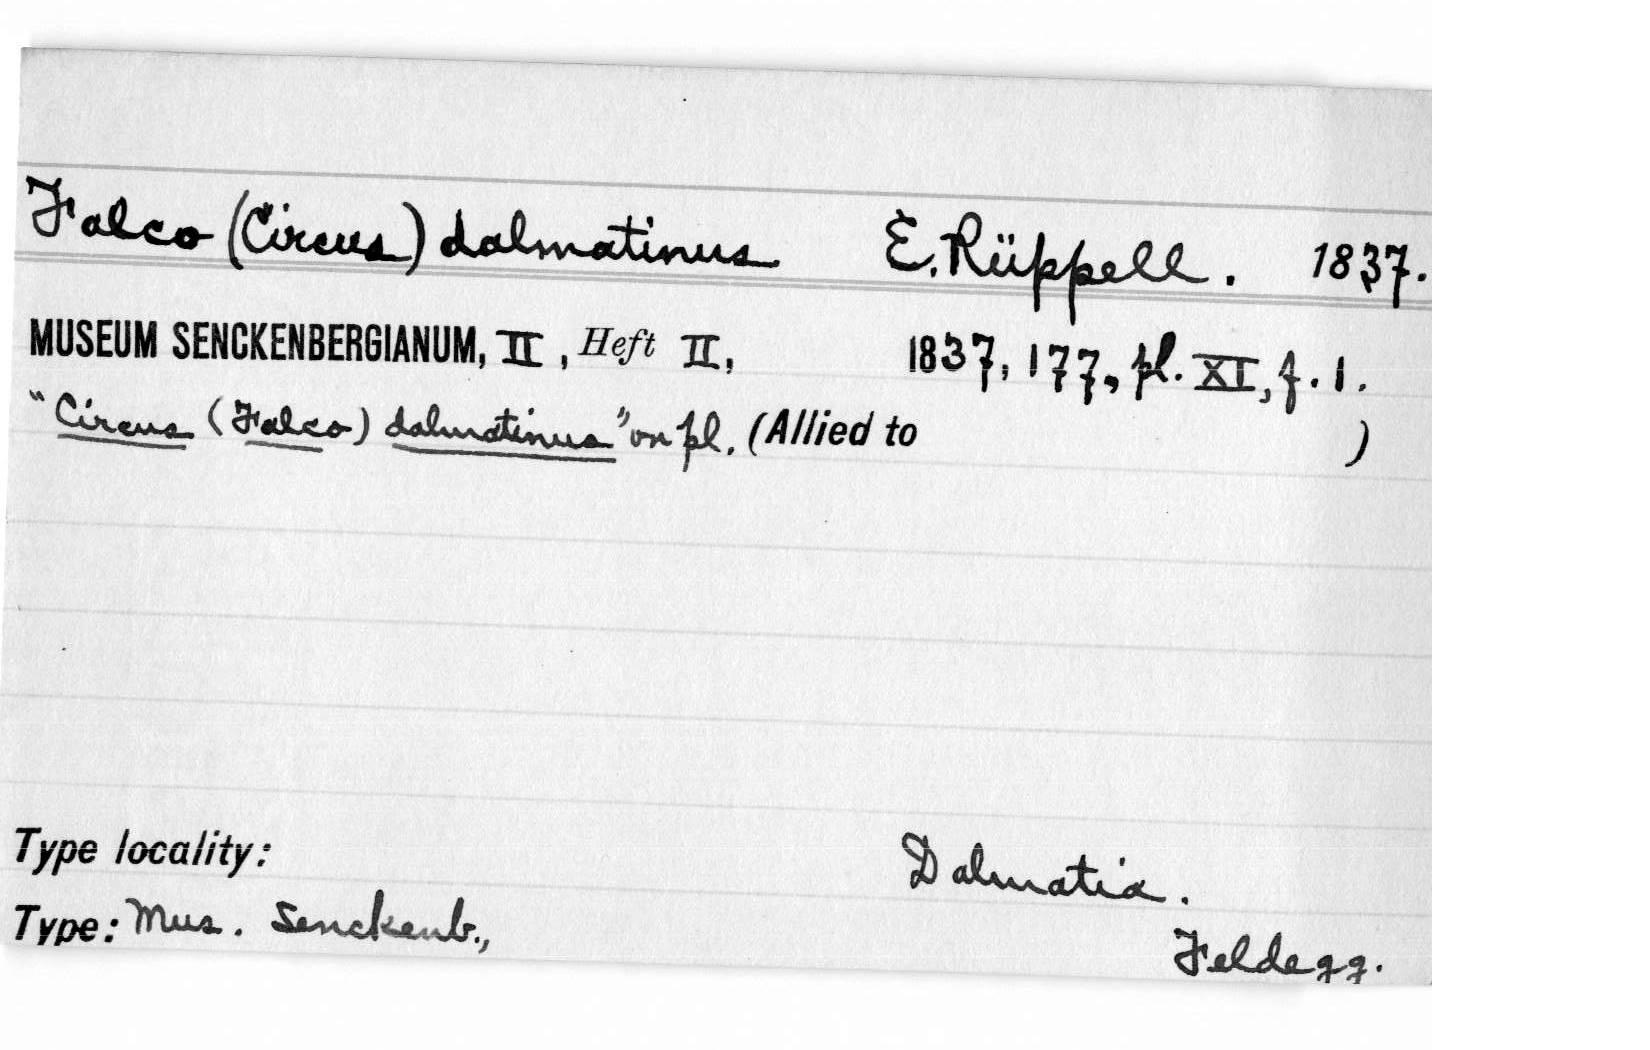 Falco (Circus) dalmatinus E. Rüppell. 1837.
MUSEUM SENCKENBERGIANUM, II, Heft II, 1837, 177, pl. XI, f. 1.
"Circus (Falco) dalmatinus" on pl. (Allied to )
Type locality: Dalmatia.
Type: Mus. Senckenb., Feldegg.